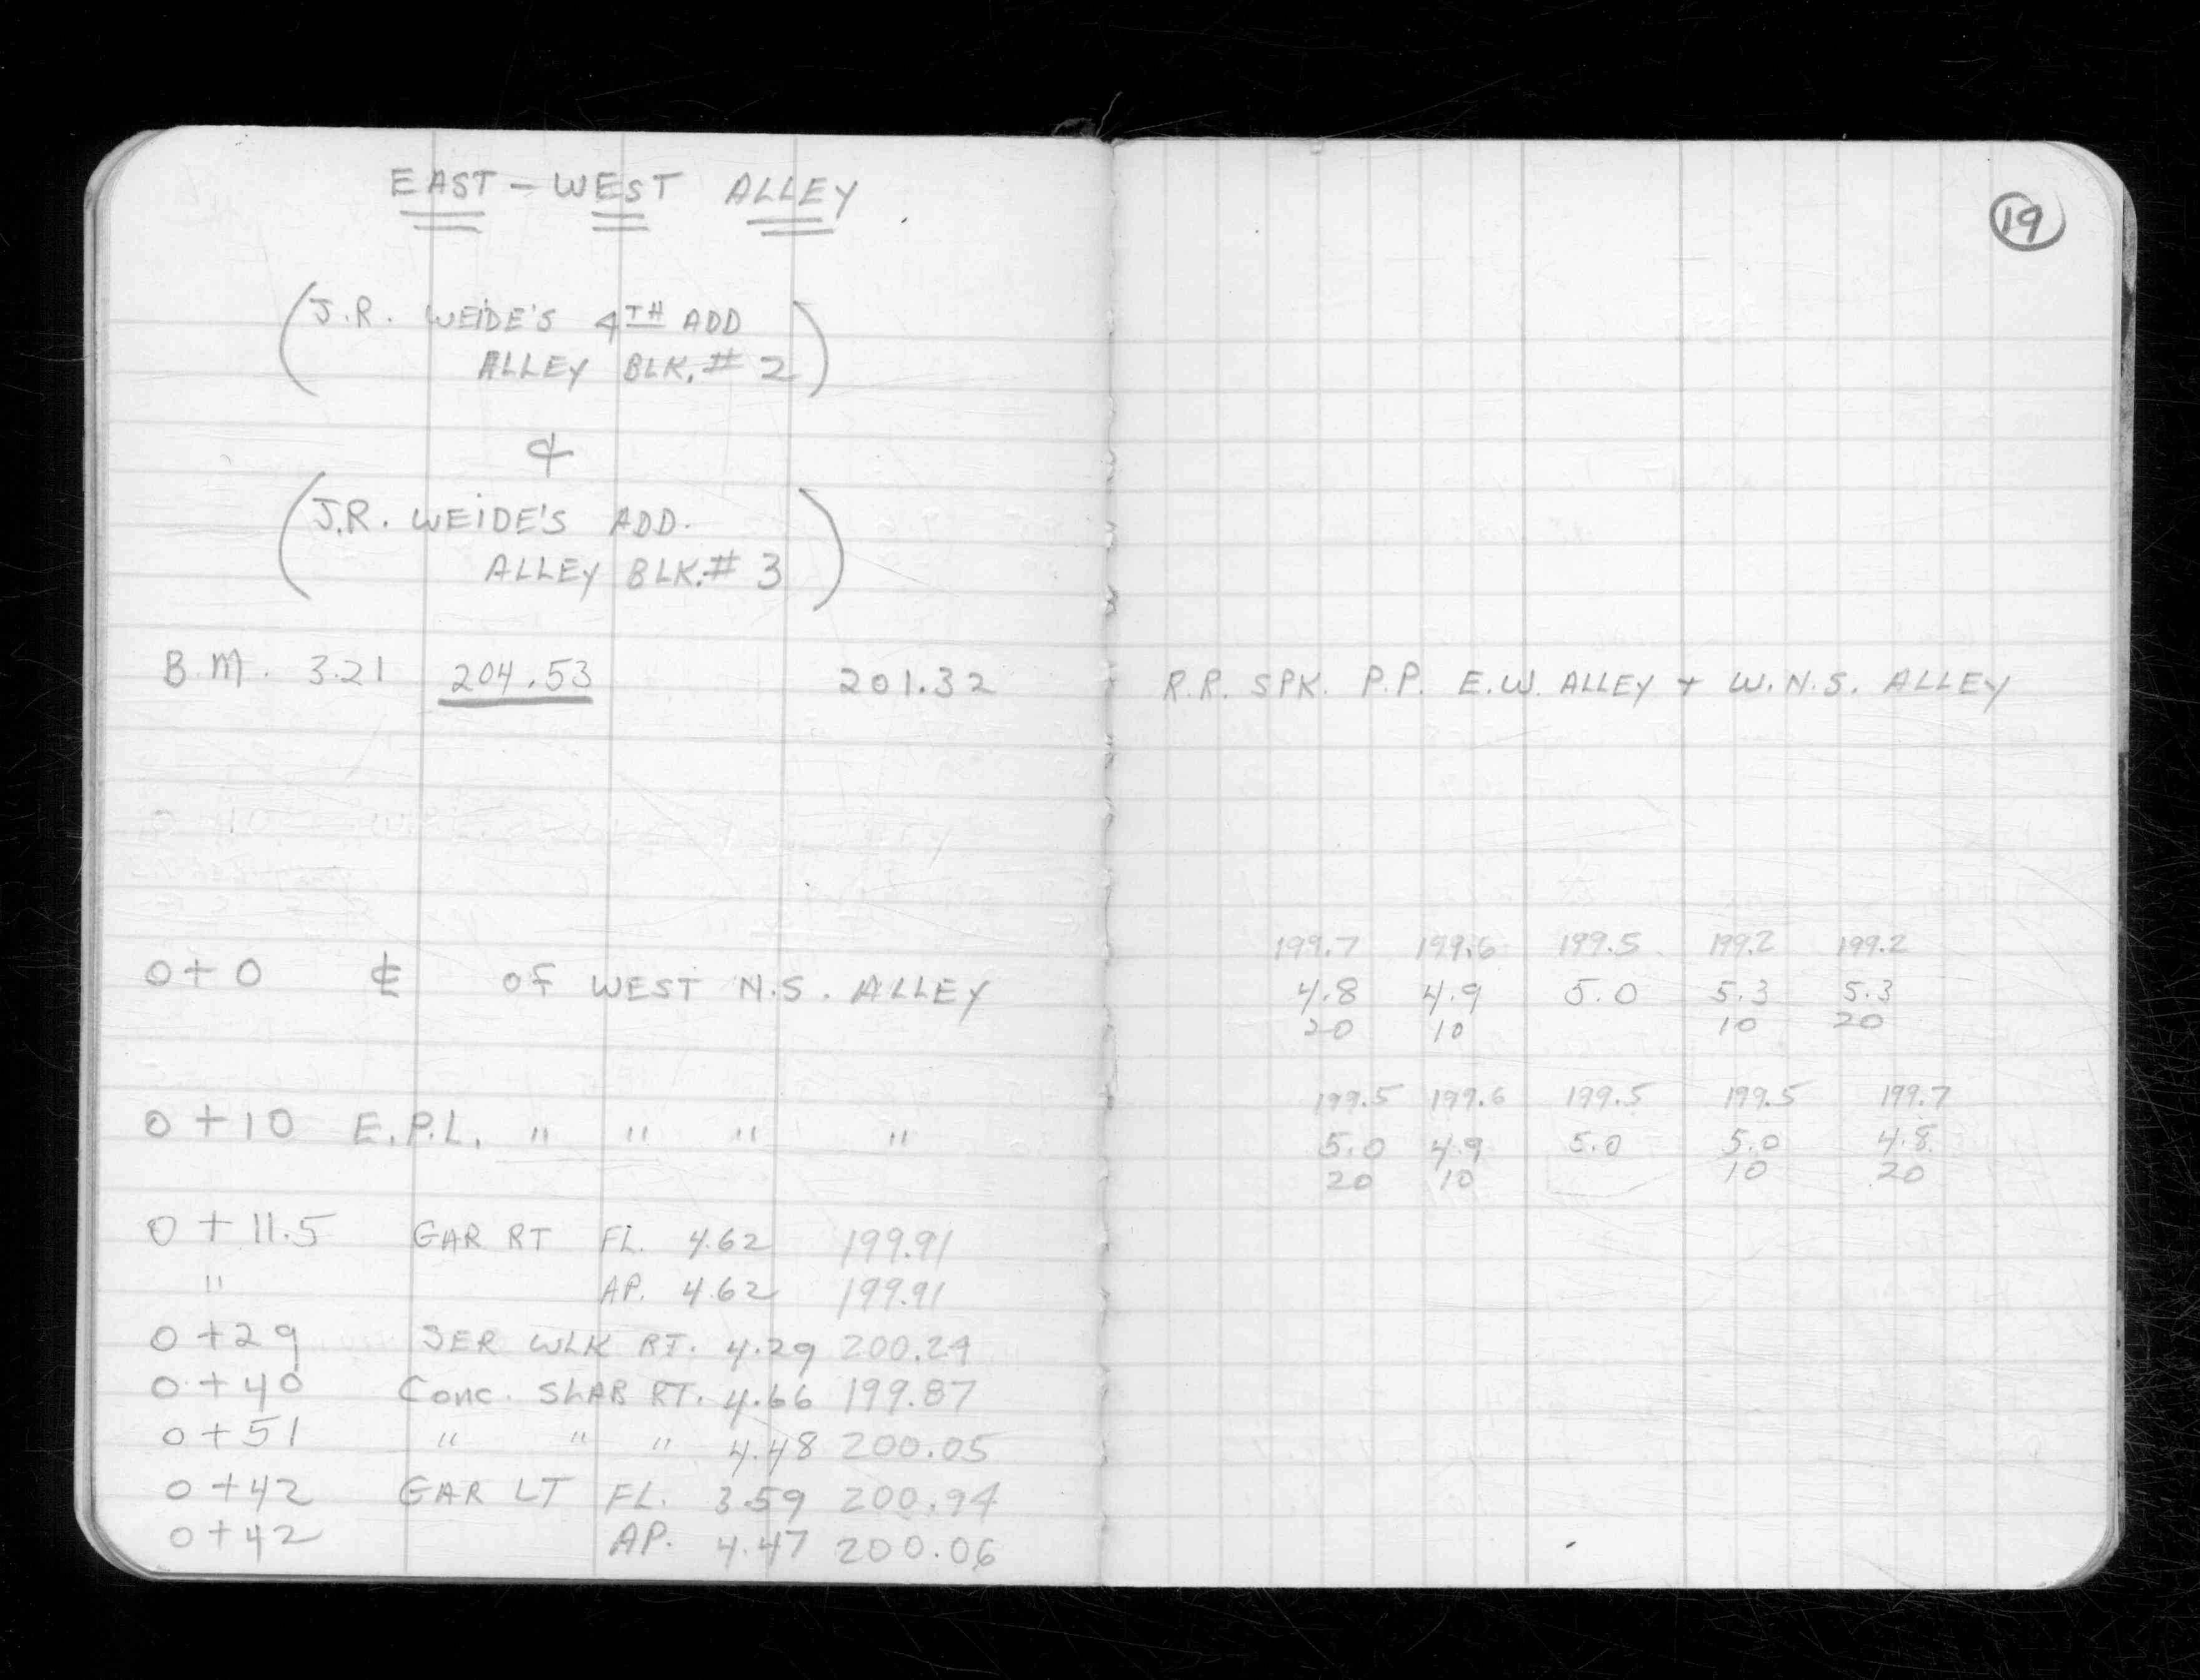 EAST - WEST ALLEY
(J.R. WEIDE'S 4TH ADD
ALLEY BLK. # 2)
&
(J.R. WEIDE'S ADD.
ALLEY BLK. # 3)
B.M. 3.21 204.53 201.32
0+0 ℄ OF WEST N.S. ALLEY
0+10 E.P.L. " " " "
0+11.5 GAR RT FL. 4.62 199.91
" AP. 4.62 199.91
0+29 SER WLK RT. 4.29 200.24
0+40 Conc. SLAB RT. 4.66 199.87
0+51 " " " 4.48 200.05
0+42 GAR LT FL. 3.59 200.94
0+42 AP. 4.47 200.06
19
R.R. SPK. P.P. E.W. ALLEY + W.N.S. ALLEY
199.7 199.6 199.5 199.2 199.2
4.8 4.9 5.0 5.3 5.3
20 10 10 20
199.5 199.6 199.5 199.5 199.7
5.0 4.9 5.0 5.0 4.8
20 10 10 20